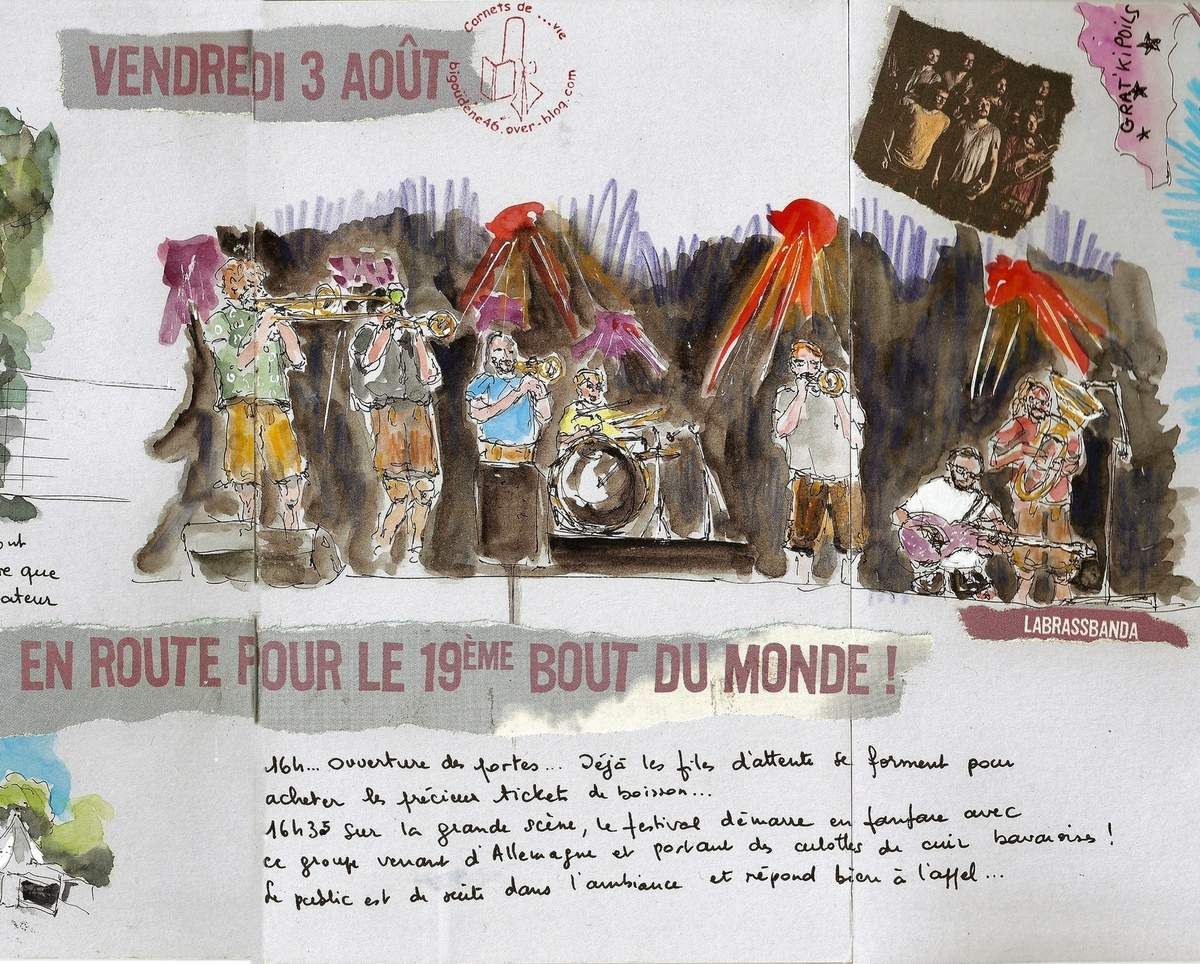 VENDREDI 3 AOÛT
Carnets de ...vie
bigoudene46.over-blog.com
GRAT'KIPOILS
out
re que
ateur
LABRASSBANDA
EN ROUTE POUR LE 19ÈME BOUT DU MONDE !
16h... Ouverture des portes... Déjà les files d'attente se forment pour
acheter les précieux tickets de boisson...
16h35 Sur la grande scène, le festival démarre en fanfare avec
ce groupe venant d'Allemagne et portant des culottes de cuir bavaroises !
Le public est de suite dans l'ambiance et répond bien à l'appel...